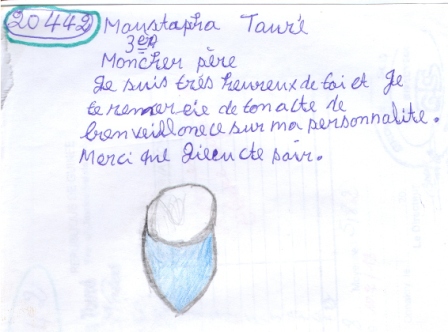 20442 Moustapha Touré
3em
Moncher père
Je suis très heureux de toi et Je
te remercie de ton acte de
bienveillonece sur ma personnalite.
Merci que Dieu cte paix.